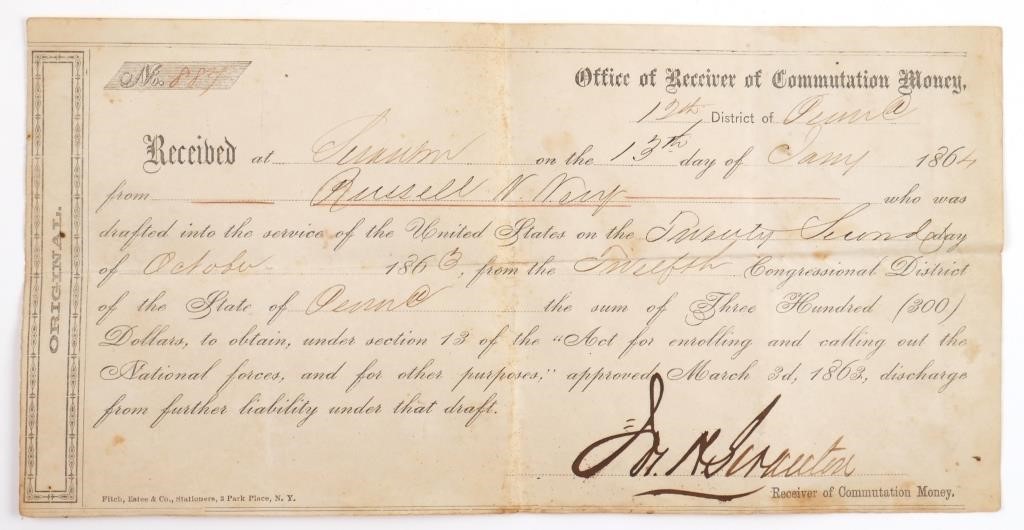 No. 887
Office of Receiver of Commutation Money,
12th District of Penna
Received at Scranton on the 13th day of Jany 1864
from Russell N. Nevy who was
drafted into the service of the United States on the Twenty Second day
of October 1863, from the Twelfth Congressional District
of the State of Penna the sum of Three Hundred (300)
Dollars, to obtain, under section 13 of the "Act for enrolling and calling out the
National forces, and for other purposes," approved March 3d, 1863, discharge
from further liability under that draft.
Jos. H. Scranton
Receiver of Commutation Money.
Fitch, Estee & Co., Stationers, 3 Park Place, N. Y.
ORIGINAL.